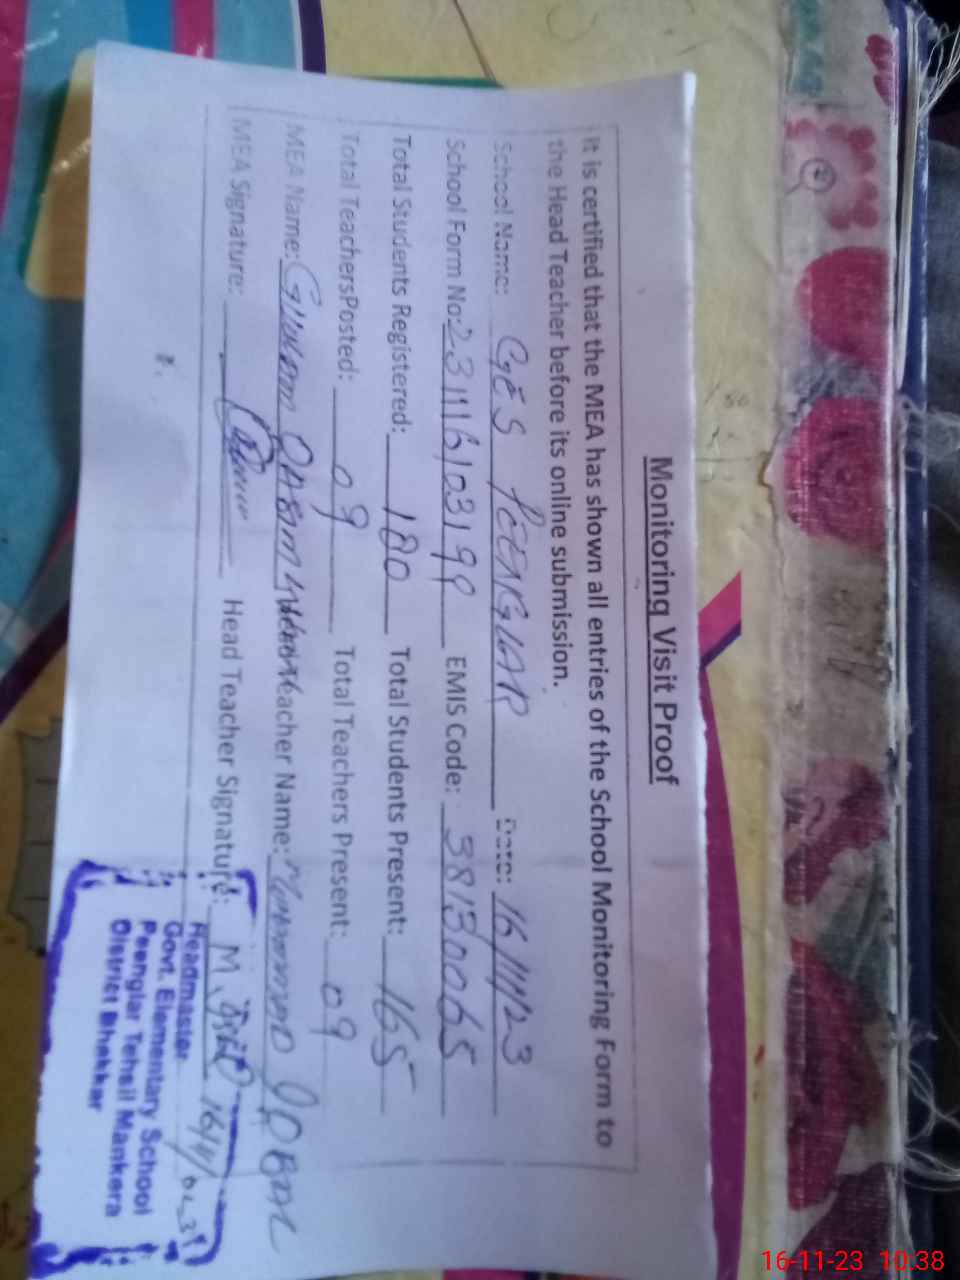 Monitoring Visit Proof
It is certified that the MEA has shown all entries of the School Monitoring Form to
the Head Teacher before its online submission.
School Name: GES PEENGLAR Date: 16/11/23
School Form No: 231116103199 EMIS Code: 38130065
Total Students Registered: 180 Total Students Present: 165
Total TeachersPosted: 09 Total Teachers Present: 09
MEA Name: Ghulam Qasim eacher Name: Muhammad Iqbal
MEA Signature: Head Teacher Signature: M. 16/11/023
Headmaster
Govt. Elementary School
Peenglar Tehsil Mankera
District Bhakkar
16-11-23 10:38